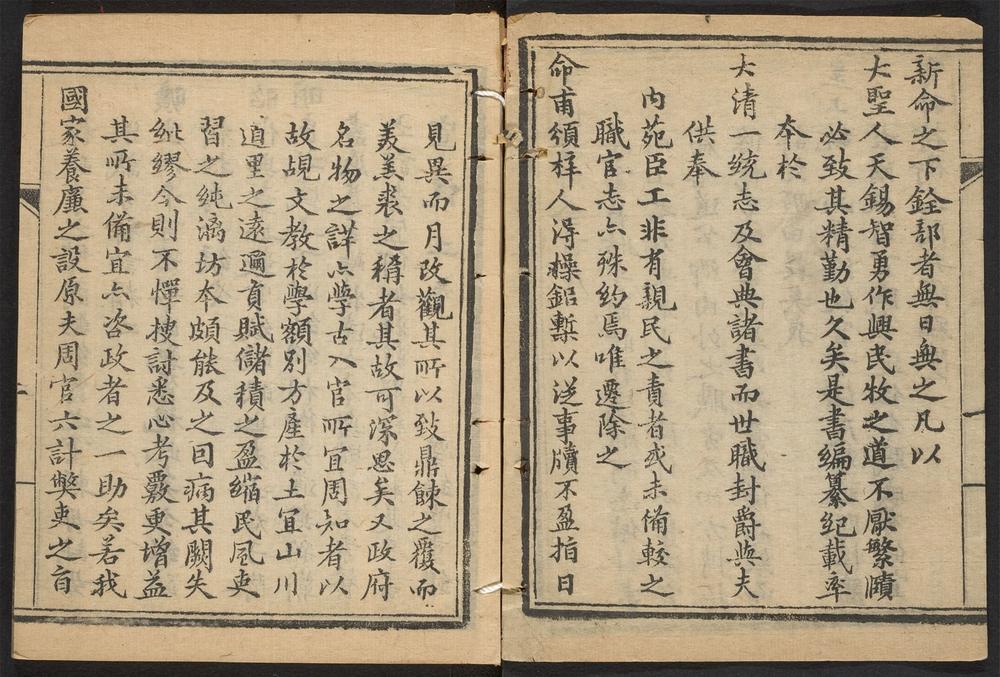 新命之下銓部者無日無之凡以
大聖人天錫智勇作興民牧之道不厭繁賾
必致其精勤也久矣是書編纂紀載率
本於
大清一統志及會典諸書而世職封爵與夫
供奉
內苑臣工非有親民之責者或未備較之
職官志亦殊約焉唯遷除之
命甫頒梓人淂操鉛槧以從事牘不盈指日
見異而月改觀其所以致鼎餗之覆而
羙羔裘之稱者其故可深思矣又政府
名物之詳亦學古入官所宜周知者以
故覘文教於學額別方產於土宜山川
道里之遠邇貢賦儲積之盈縮民風吏
習之純漓坊本頗能及之曰病其闕失
紕繆今則不憚搜討悉心考覈更增益
其所未備宜亦咨政者之一助矣若我
國家養廉之設原夫周官六計弊吏之旨